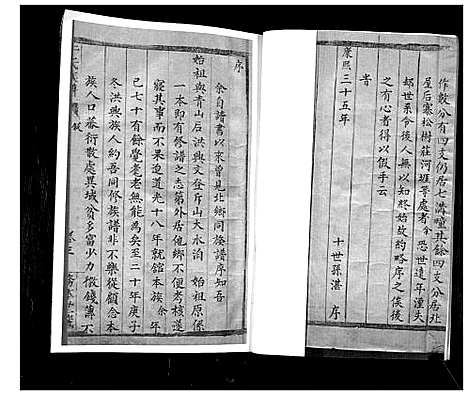 作數分有四支仍居七溝疃其餘四支分居北
屋后寨松樹莊河堐等處者余恐世遠年湮失
却世系令後人無以知終始故約略序之俟後
之有心者得以假手云
旹
康熙三十五年
十世孫湛 序
序
余自譜書以來曾見北鄉同族譜序知吾
始祖與青山后洪興文登岸山大水泊 始祖原係
一本即有修譜之志第外居他鄉不便考核遂
寢其事而不果迨道光十八年就館本族 余年
已七十有餘耄耄老無能為矣至二十年庚子
冬洪興族人約吾同修族譜非不樂從顧念本
族人口蕃衍散處異域貧多富少力微錢薄不
卷三